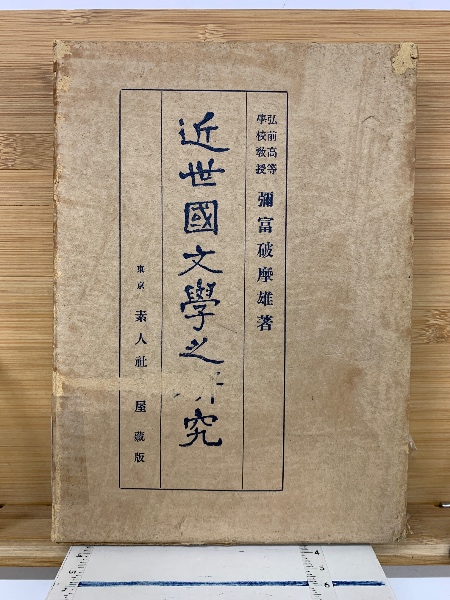 弘前高等
學校敎授
彌富破摩雄著
近世國文學之研究
東京 素人社 屋藏版